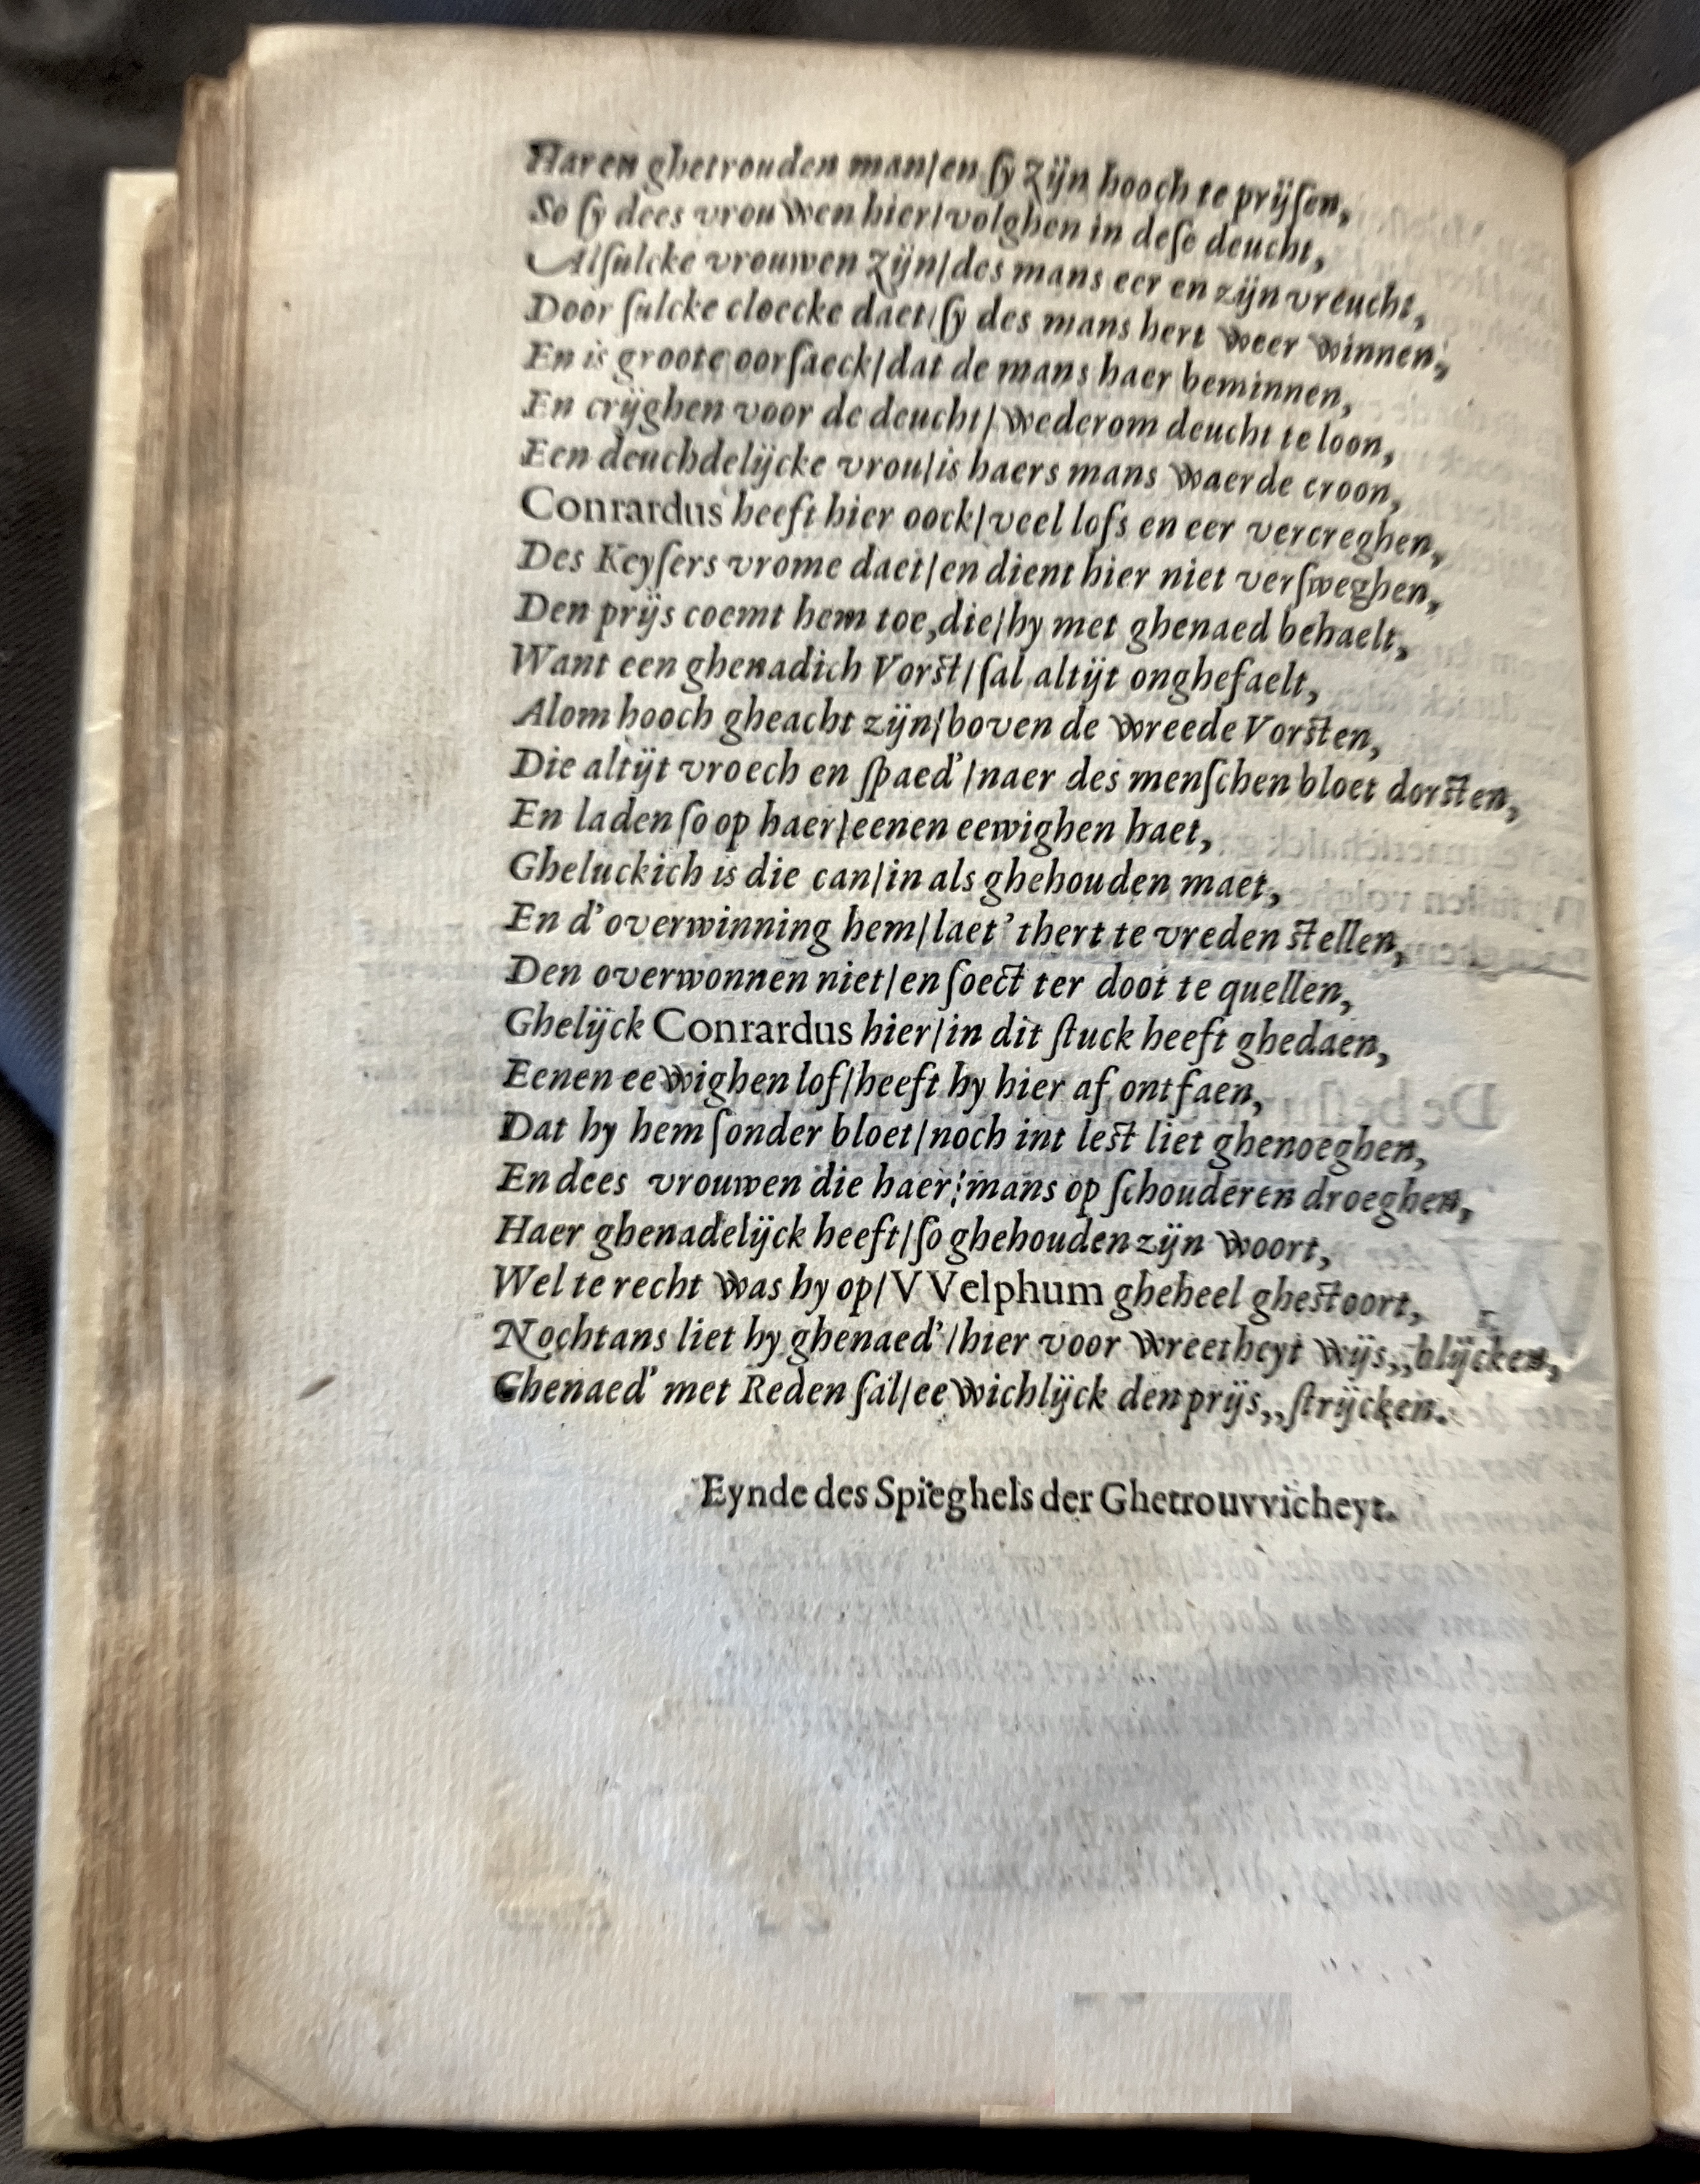 Haren ghetrouden man/en ſy zijn hooch te prijſen,
So ſy dees vrouwen hier/volghen in deſe deucht,
Alſulcke vrouwen zijn/des mans eer en zijn vreucht,
Door ſulcke cloecke daet/ſy des mans hert weer winnen,
En is groote oorſaeck/dat de mans haer beminnen,
En crijghen voor de deucht/wederom deucht te loon,
Een deuchdelijcke vrou/is haers mans waerde croon,
Conrardus heeft hier oock/veel lofs en eer vercreghen,
Des Keyſers vrome daet/en dient hier niet verſweghen,
Den prijs coemt hem toe,die/hy met ghenaed behaelt,
Want een ghenadich Vorst/ſal altijt onghefaelt,
Alom hooch gheacht zijn/boven de wreede Vorsten,
Die altijt vroech en ſpaed'/naer des menſchen bloet dorsten,
En laden ſo op haer/eenen eewighen haet,
Gheluckich is die can/in als ghehouden maet,
En d'overwinning hem/laet'thert te vreden stellen,
Den overwonnen niet/en ſoect ter doot te quellen,
Ghelijck Conrardus hier/in dit ſtuck heeft ghedaen,
Eenen eewighen lof/heeft hy hier af ontfaen,
Dat hy hem ſonder bloet/noch int lest liet ghenoeghen,
En dees vrouwen die haer/mans op ſchouderen droeghen,
Haer ghenadelijck heeft/ſo ghehouden zijn woort,
Wel te recht was hy op/VVelphum gheheel ghestoort,
Nochtans liet hy ghenaed'/hier voor wreetheyt wijs,,blijcken,
Ghenaed' met Reden ſal/eewichlijck den prijs,,ſtrijcken.
Eynde des Spieghels der Ghetrouvvicheyt.